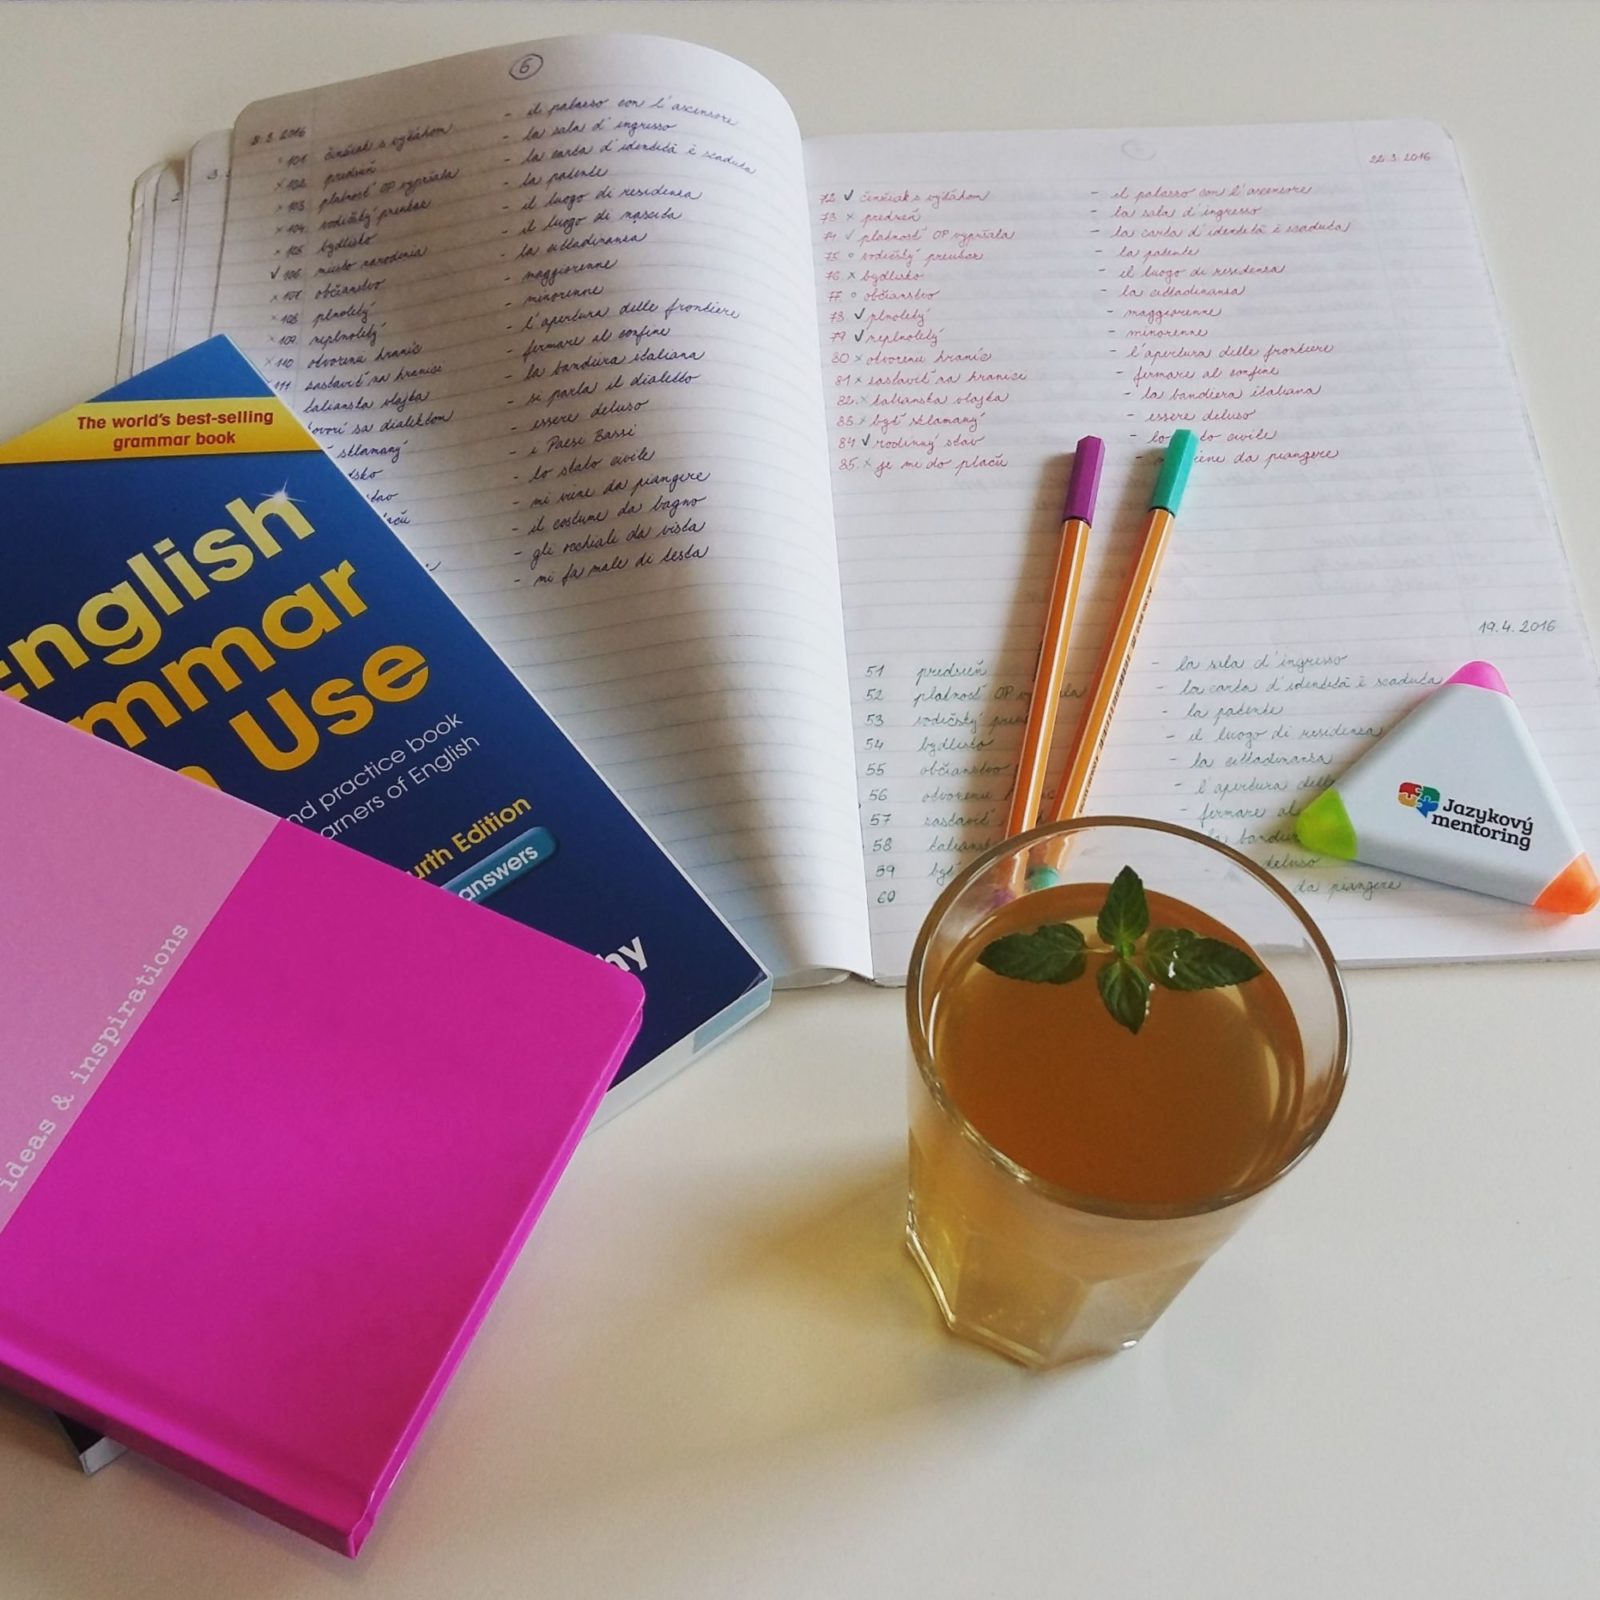 6
101 činžiak s výťahom - il palazzo con l'ascensore
× 102 predsieň - la sala d'ingresso
× 103 platnosť OP vypršala - la carta d'identità è scaduta
× 104 vodičský preukaz - la patente
× 105 bydlisko - il luogo di residenza
✓ 106 miesto narodenia - il luogo di nascita
× 107 občianstvo - la cittadinanza
× 108 plnoletý - maggiorenne
× 109 neplnoletý - minorenne
× 110 otvorenie hraníc - l'apertura delle frontiere
111 zastaviť na hranici - fermare il confine
talianska vlajka - la bandiera italiana
ovorí sa dialektom - si parla il dialetto
sklamaný - essere deluso
dsko - i Paesi Bassi
stav - lo stato civile
laču - mi viene da piangere
- il costume da bagno
- gli occhiali da vista
- mi fa male di testa
22.3.2016
72. ✓ činžiak s výťahom - il palazzo con l'ascensore
73. × predsieň - la sala d'ingresso
74. ✓ platnosť OP vypršala - la carta d'identità è scaduta
75. o vodičský preukaz - la patente
76. × bydlisko - il luogo di residenza
77. o občianstvo - la cittadinanza
78 ✓ plnoletý - maggiorenne
79 ✓ neplnoletý - minorenne
80 × otvorenie hraníc - l'apertura delle frontiere
81 × zastaviť na hranici - fermare al confine
82. × talianska vlajka - la bandiera italiana
83 × byť sklamaný - essere deluso
84 ✓ rodinný stav - lo to civile
85. × je mi do plaču - m iene da piangere
19.4.2016
51 predsieň - la sala d'ingresso
52 platnosť OP vypršala - la carta d'identità è scaduta
53 vodičský preu - la patente
54 bydlisko - il luogo di residenza
55 občianstvo - la cittadinanza
56 otvorenie - l'apertura delle
57 zastaviť - fermare al
58 taliansk - la bandier
59 byť deluso
60 da piangere
The world's best-selling
grammar book
English
mmar
Use
nd practice book
arners of English
urth Edition
answers
hy
ideas & inspirations
Jazykový
mentoring